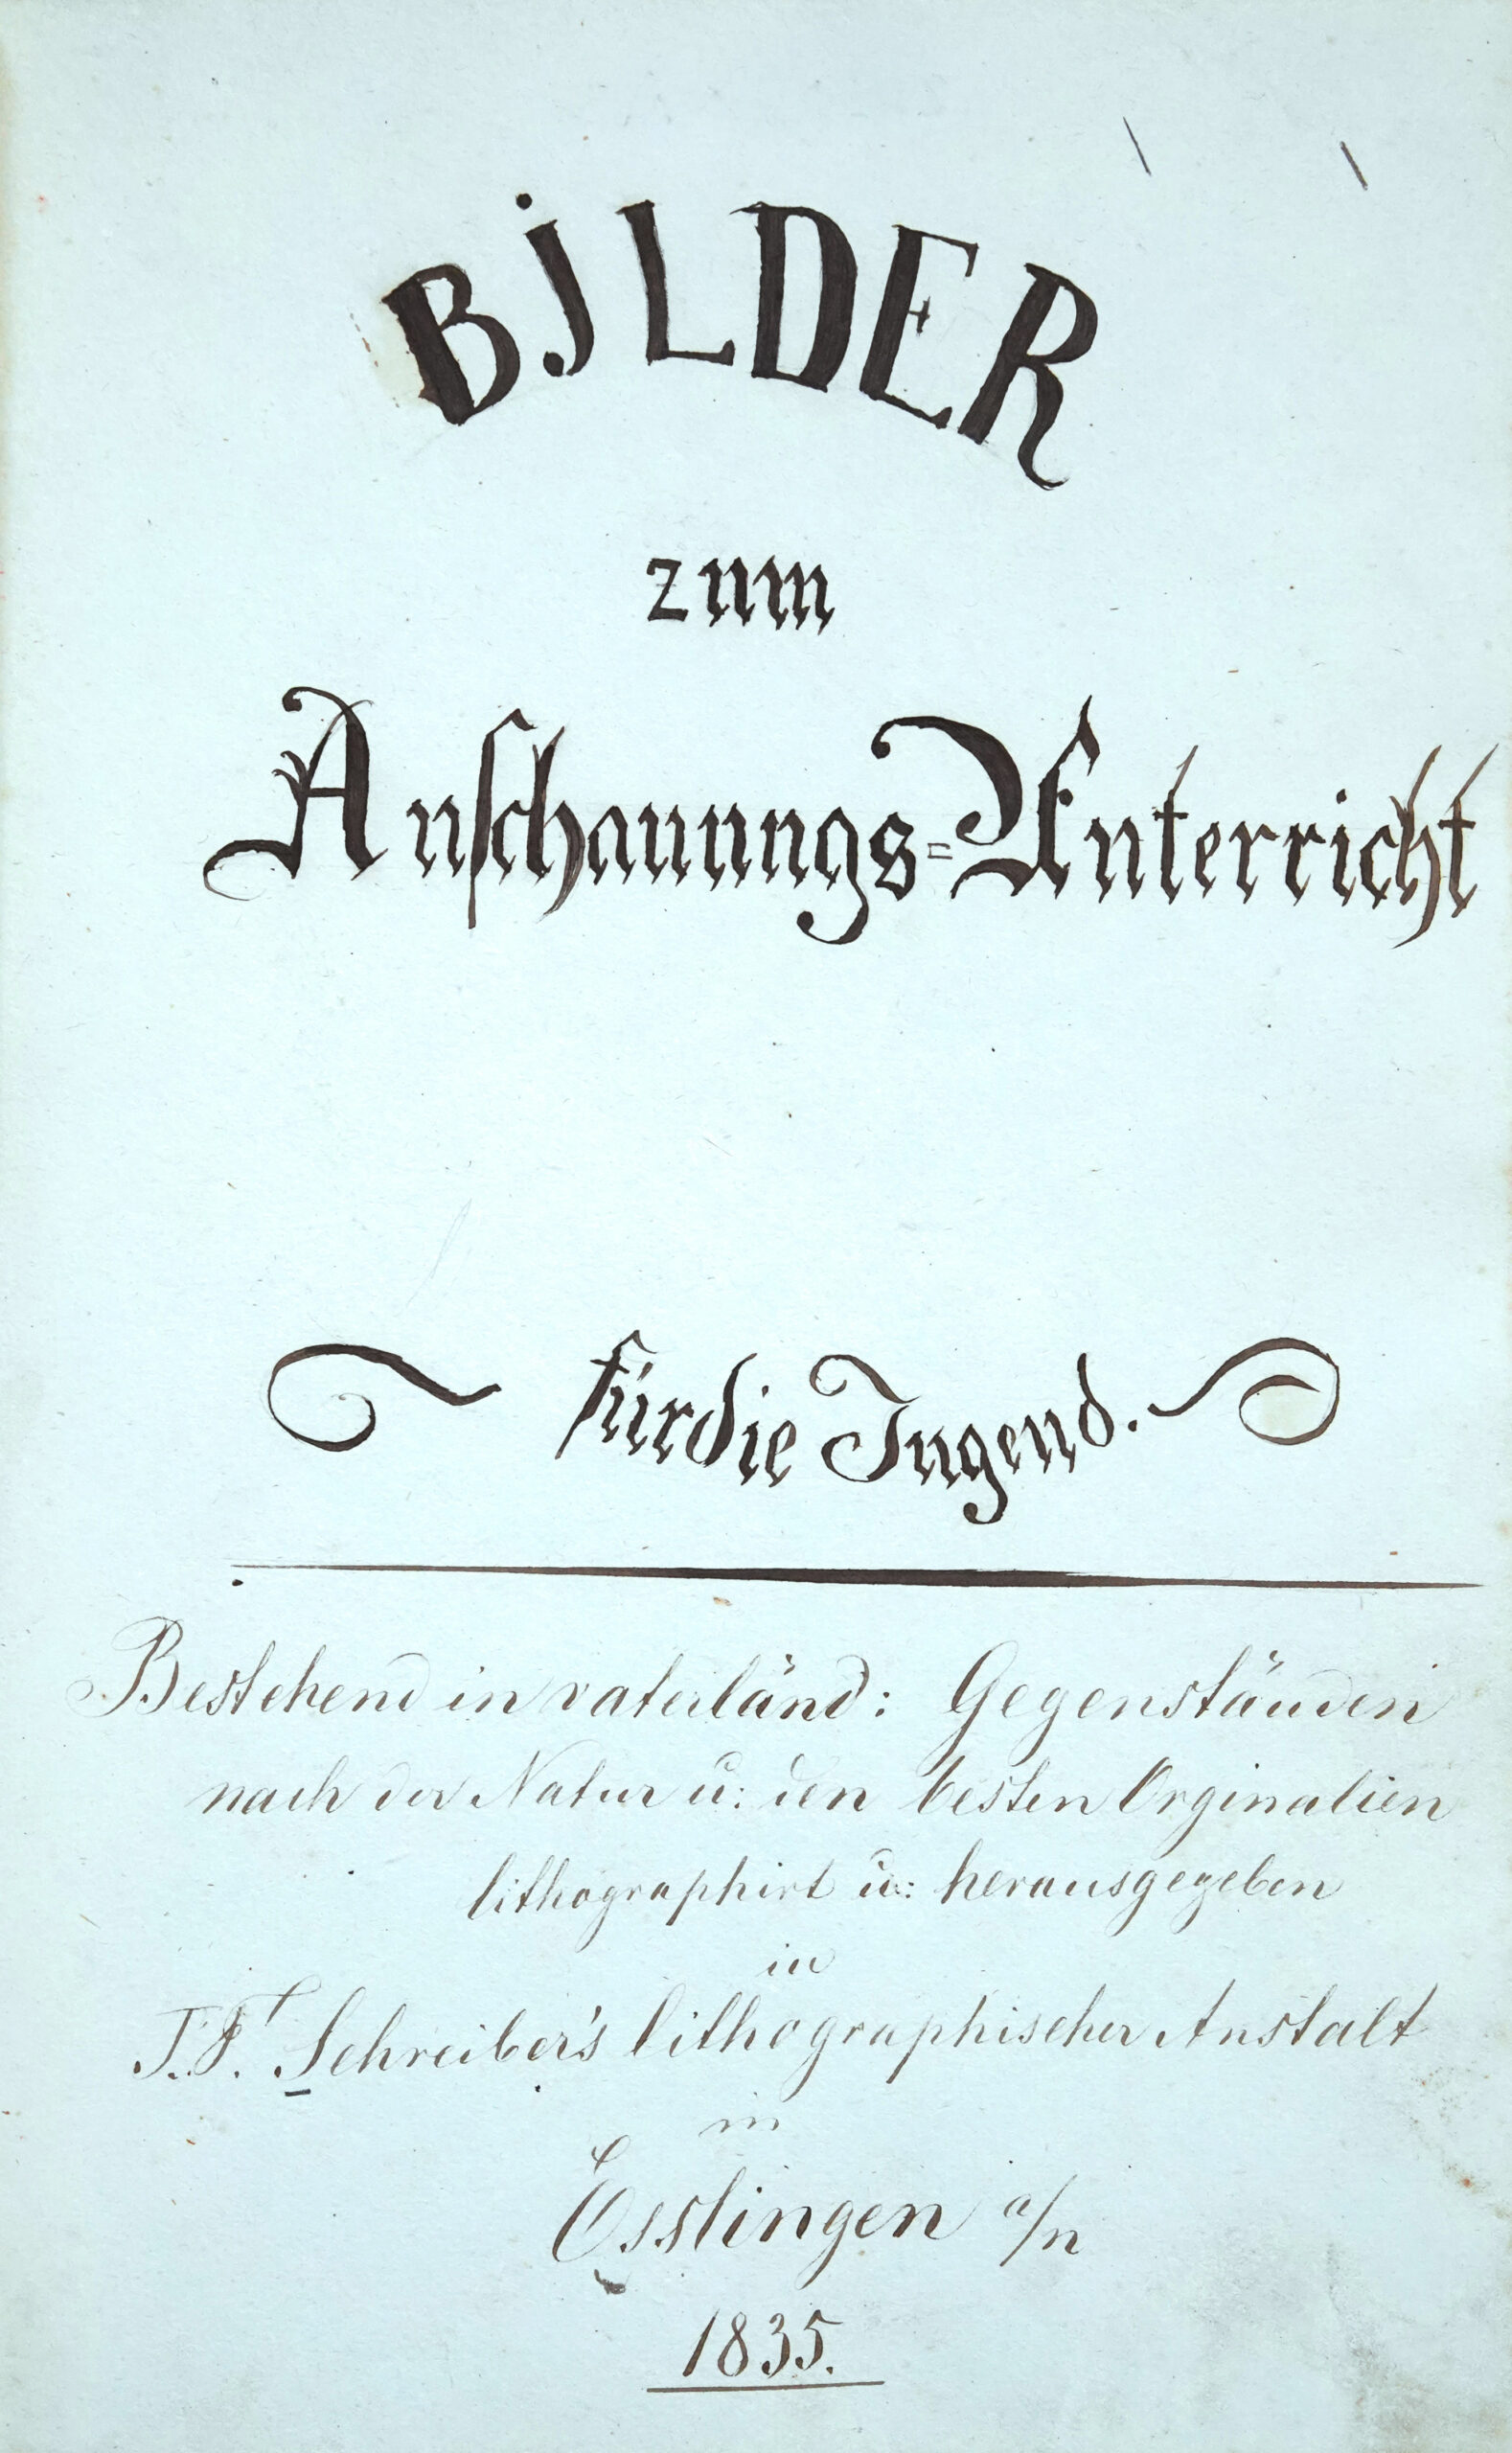 BjLDER
zum
Anſchauungs=Unterricht
für die Jugend.
Bestehend in vaterländ: Gegenständen
nach der Natur u: den besten Orginalien
lithographirt u: herausgegeben
in
J. F. Schreiber's lithographischer Anstalt
in
Esslingen a/n
1835.